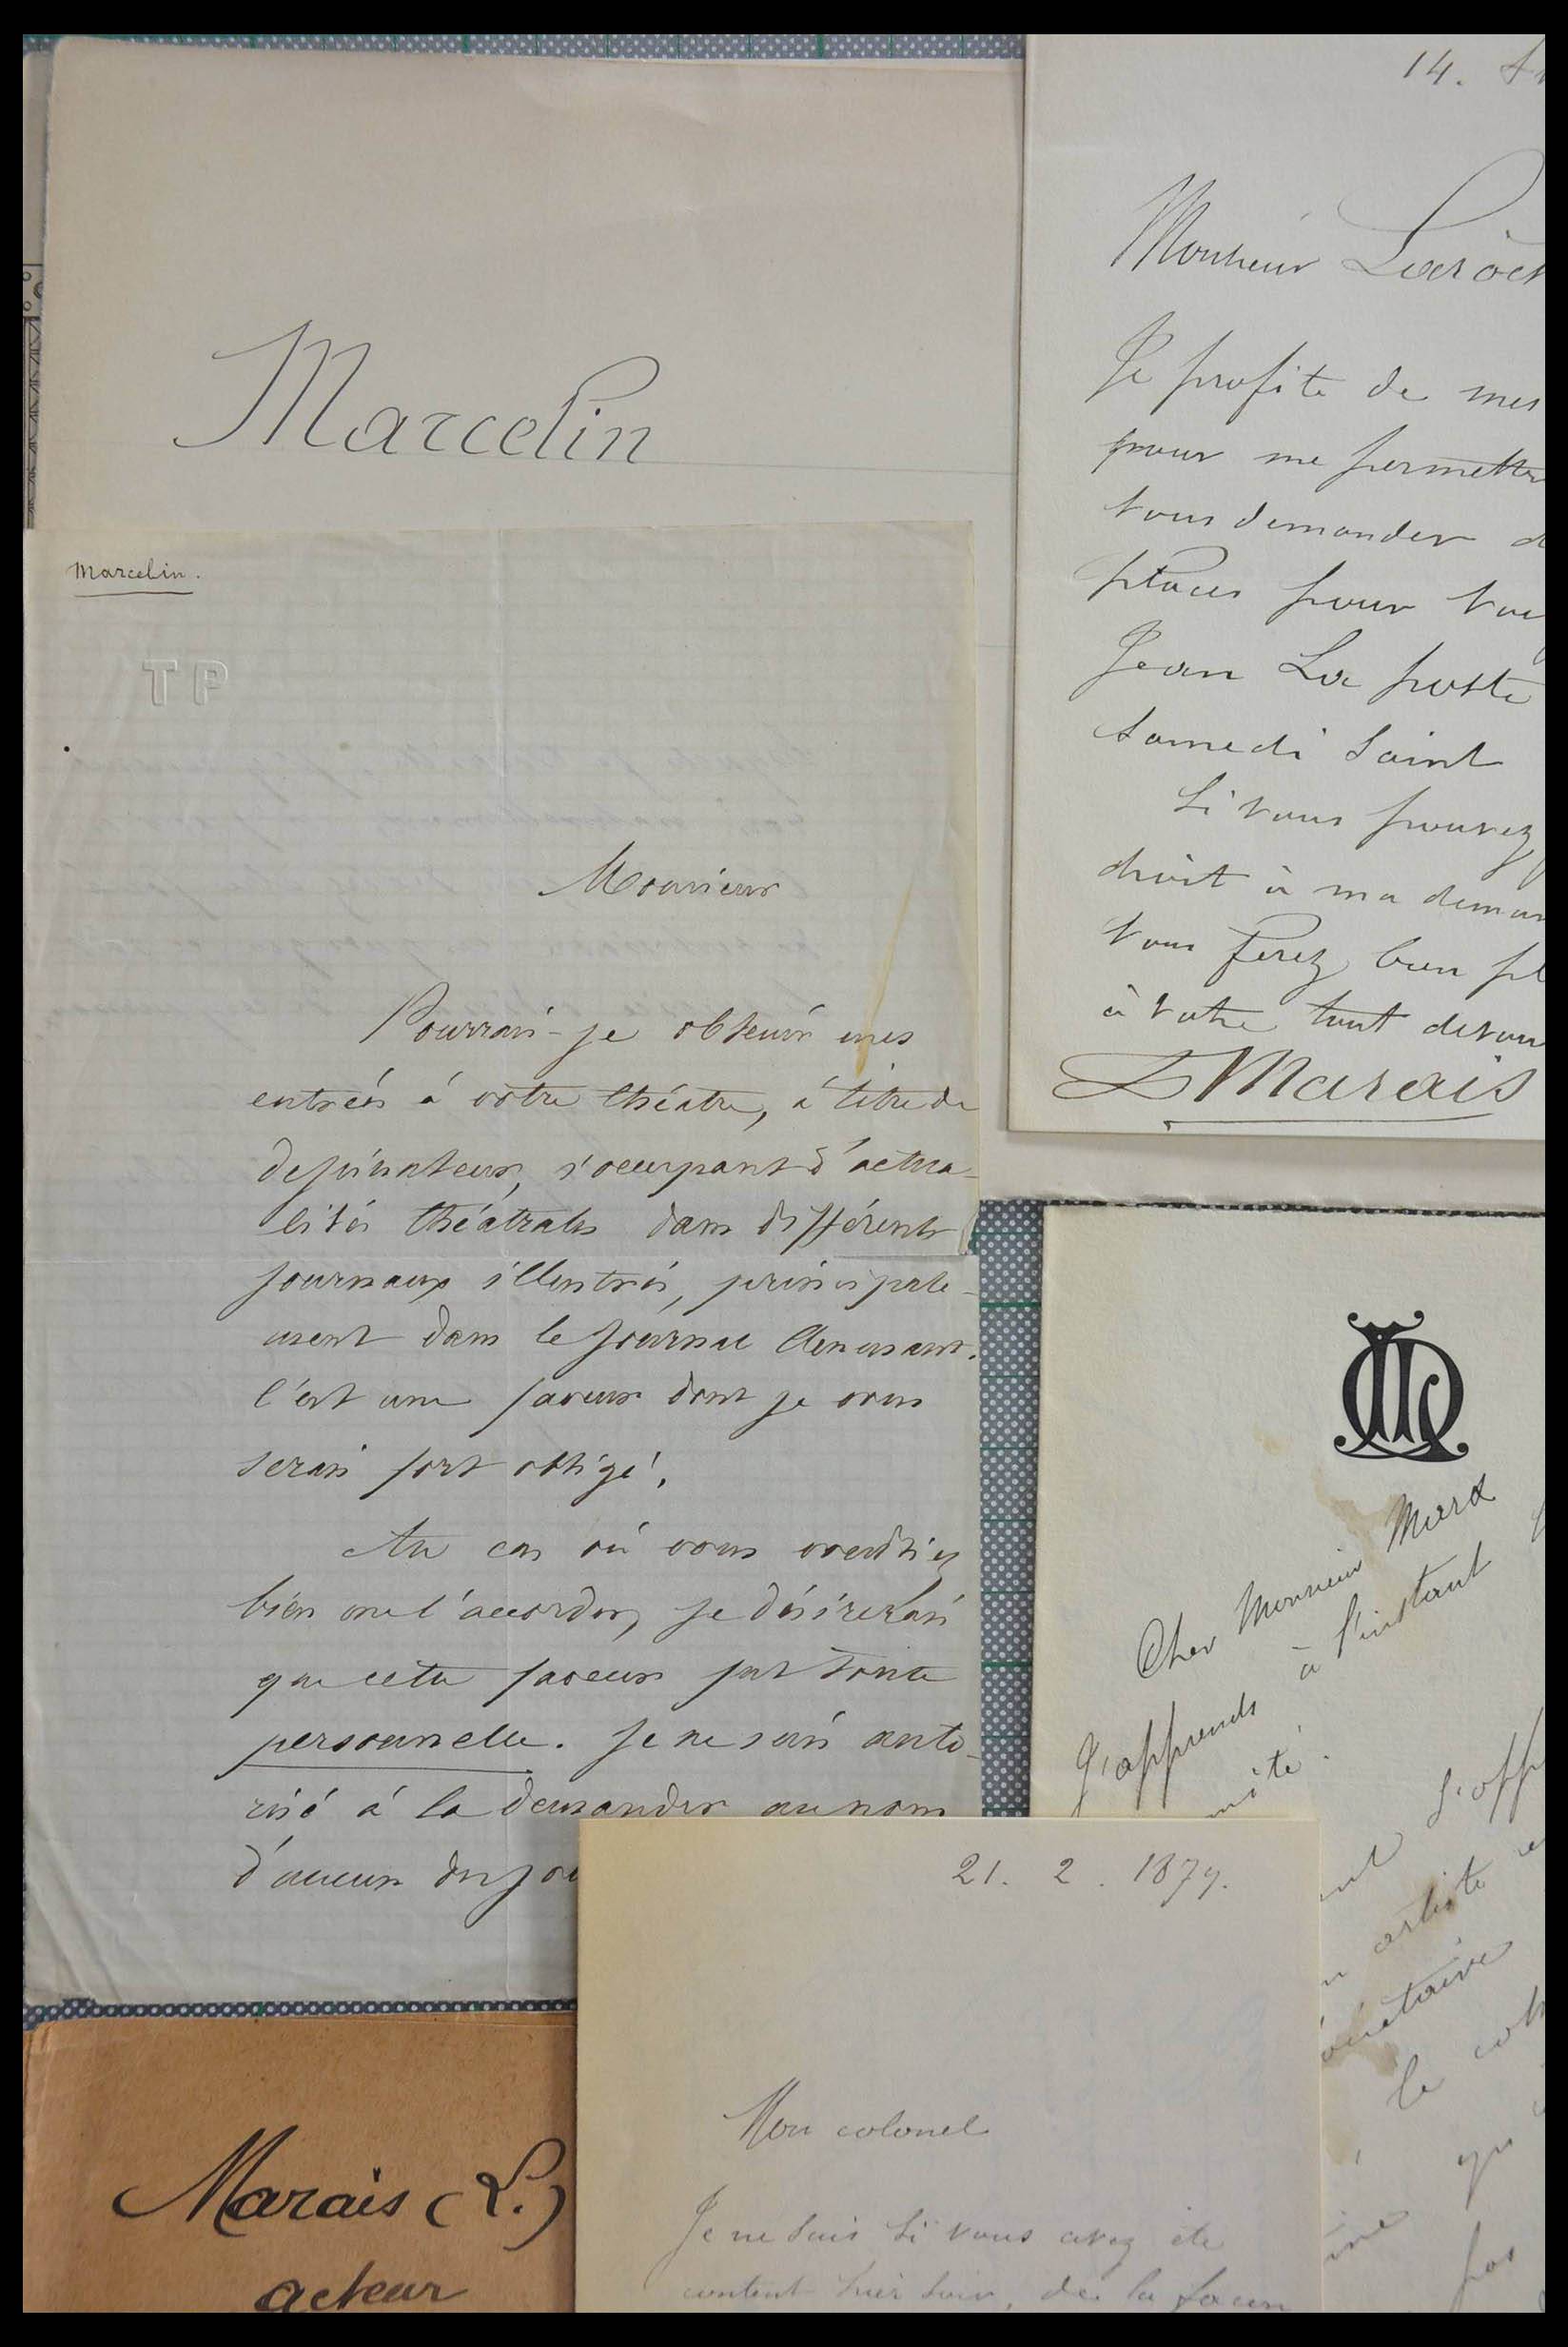 Marcelin
Marcelin.
TP
Monsieur
Pourrais-je obtenir mes
entrées à votre théâtre, à titre de
dessinateur, s'occupant d'actua-
lités théatrales dans différents
journaux illustrés, principale-
ment dans le Journal Amusant.
C'est une faveur dont je vous
serais fort obligé.
Au cas où vous voudriez
bien me l'accorder, je désirerais
que cette faveur fut toute
personnelle. Je ne suis auto-
risé à la demander au nom
d'aucun des jou
14.
Monsieur
Je profite de mes
pour me permettre
vous demander d
places pour
Jean La poste
Samedi Saint
Si vous pouvez
droit à ma deman
vous ferez bien pl
à votre tout devou
L Marais
Cher Monsieur Marx
J'apprends à l'instant
mité.
s'off
artiste
le
qu
pas
21. 2. 1879.
Mon colonel
Je ne sais si vous avez été
content hier soir, de la façon
Marais (L.)
acteur